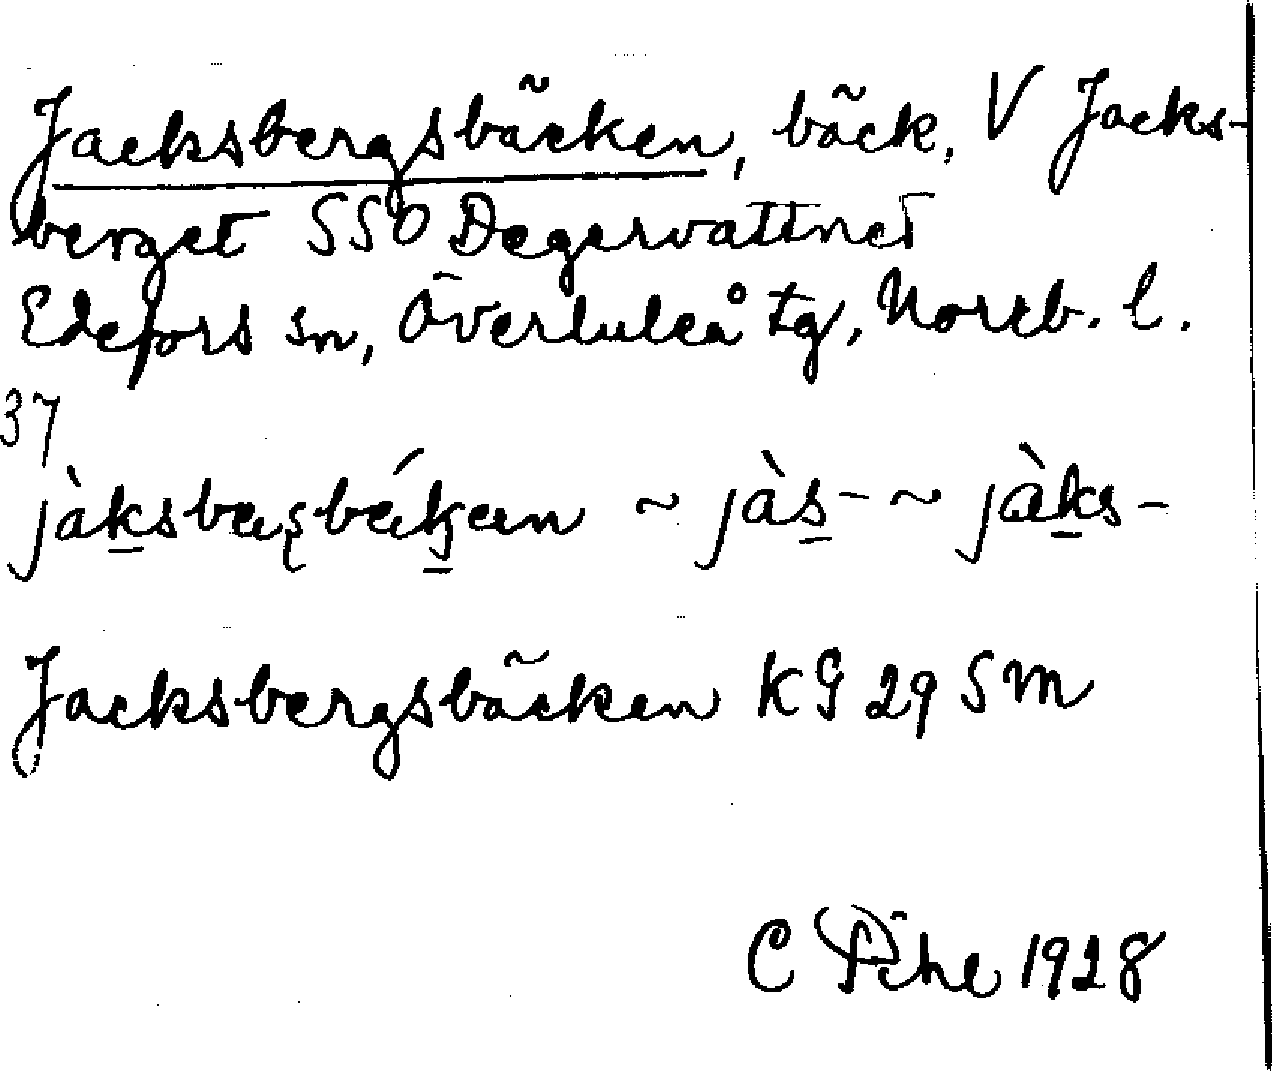 Jacksbergsbäcken, bäck, V Jacks-
berget SSO Degervattnet
Edefors sn, Överluleå tg, Norrb. l.
37
jàksbæṣbǽkæn ~ jàs- ~ jàks-
Jacksbergsbäcken KG 29 SM
C Pihl 1928